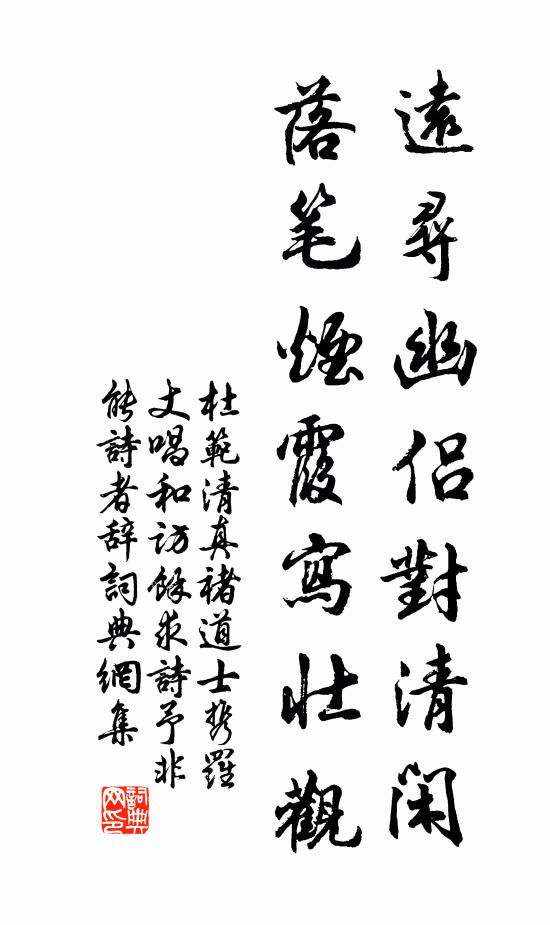 遠尋幽侶對清閑
落笔煙霞寫壯觀
杜範清真褚道士携羅
丈唱和訪餘求詩予非
能詩者辞詞典網集
詞典網印